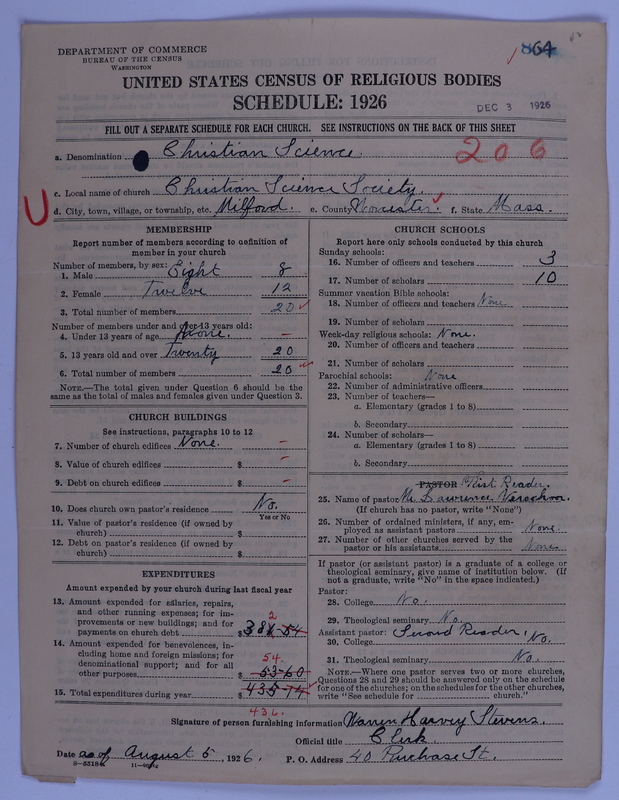 DEPARTMENT OF COMMERCE
BUREAU OF THE CENSUS
WASHINGTON
864
UNITED STATES CENSUS OF RELIGIOUS BODIES
SCHEDULE: 1926
DEC 3 1926
FILL OUT A SEPARATE SCHEDULE FOR EACH CHURCH. SEE INSTRUCTIONS ON THE BACK OF THIS SHEET
a. Denomination Christian Science. 206
c. Local name of church Christian Science Society.
d. City, town, village, or township, etc. Milford. e. County Worcester. f. State Mass.
MEMBERSHIP
Report number of members according to definition of
member in your church
Number of members, by sex:
1. Male Eight 8
2. Female Twelve 12
3. Total number of members 20
Number of members under and over 13 years old:
4. Under 13 years of age None. –
5. 13 years old and over Twenty 20
6. Total number of members 20
NOTE.—The total given under Question 6 should be
same as the total of males and females given under Question 3.
CHURCH BUILDINGS
See instructions, paragraphs 10 to 12
7. Number of church edifices None. –
8. Value of church edifices $ –
9. Debt on church edifices $ –
10. Does church own pastor's residence No.
Yes or No
11. Value of pastor's residence (if owned by
church) $
12. Debt on pastor's residence (if owned by
church) $
EXPENDITURES
Amount expended by your church during last fiscal year
13. Amount expended for salaries, repairs,
and other running expenses; for im-
provements or new buildings; and for
payments on church debt $ 381.54
2
14. Amount expended for benevolences, in-
cluding home and foreign missions; for
denominational support; and for all
other purposes 53.60
54.
15. Total expenditures during year $ 435.14
436.
CHURCH SCHOOLS
Report here only schools conducted by this church
Sunday schools:
16. Number of officers and teachers 3
17. Number of scholars 10
Summer vacation Bible schools:
18. Number of officers and teachers None.
19. Number of scholars
Week-day religious schools: None.
20. Number of officers and teachers
21. Number of scholars
Parochial schools: None
22. Number of administrative officers
23. Number of teachers—
a. Elementary (grades 1 to 8)
b. Secondary
24. Number of scholars—
a. Elementary (grades 1 to 8)
b. Secondary
PASTOR First Reader.
25. Name of pastor Mr. Lawrence
(If church has no pastor, write "None")
26. Number of ordained ministers, if any, em-
ployed as assistant pastors None.
27. Number of other churches served by the
pastor or his assistants None
If pastor (or assistant pastor) is a graduate of a college or
theological seminary, give name of institution below. (If
not a graduate, write "No" in the space indicated.)
Pastor:
28. College No.
29. Theological seminary No.
Assistant pastor: Second Reader,
30. College No.
31. Theological seminary No.
NOTE.—Where one pastor serves two or more churches,
Questions 28 and 29 should be answered only on the schedule
for one of the churches; on the schedules for the other churches,
write "See schedule for church."
Signature of person furnishing information Warren Harvey Stevens.
Official title Clerk.
Date as of August 5, 1926. P. O. Address 40 Purchase St.